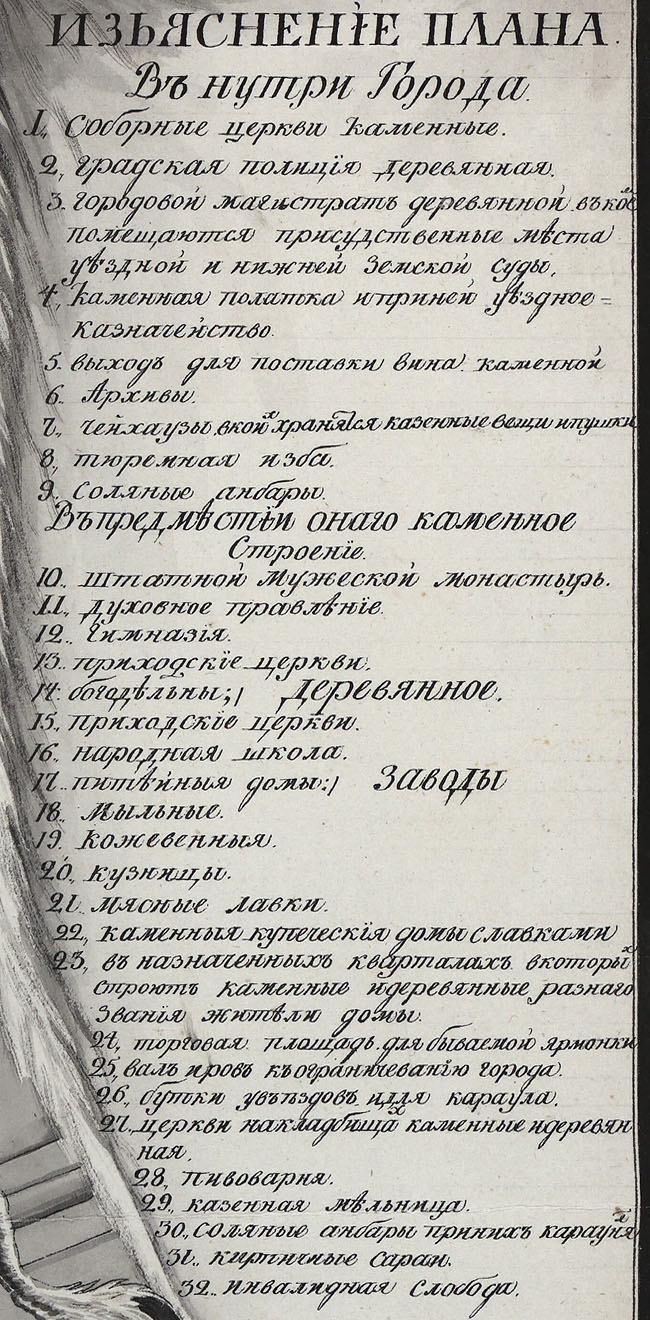 ИЗЬЯСНЕНІЕ ПЛАНА.
Въ нутри Города.
1., Соборные церкви каменные.
2, градская полиція деревянная.
3. городовой магистратъ деревянной въ кое
помещаются присудственные мѣста
уѣздной и нижней земской суды,
4, каменная полатка и приней уѣздное =
казначейство.
5. выходъ для поставки вина. каменной
6. Архивы.
7., чейхаузы, вкой х хранятся казенные вещи ипушки
8., тюремная изба.
9. соляные анбары.
Въ предмѣстіи онаго каменное
Строеніе.
10.. штатной Мужеской монастырь.
11., духовное правлѣніе.
12.. Гимназія.
13.. приходскіе церкви.
14. богодѣльны;/ деревянное.
15., приходскіе церкви.
16. народная школа.
17.. питѣйныя домы:/ Заводы
18. Мыльные.
19. кожевенныя.
20. кузницы.
21. мясные лавки.
22., каменныя купеческія домы славками
23., въ назначенныхъ кварталахъ вкоторых
строютъ каменные идеревянные разнаго
званія жители домы.
24, торговая площадь для бываемой ярмонки
25, валъ ировъ къ ограничеванію города.
26., бутки увъѣздовъ идля караула.
27., церкви накладбищах каменные идеревян
ная.
28., пивоварня.
29., казенная мѣльница.
30., соляные анбары принихъ карауня
31.. кирпичные сараи.
32.. инвалидная слобода.